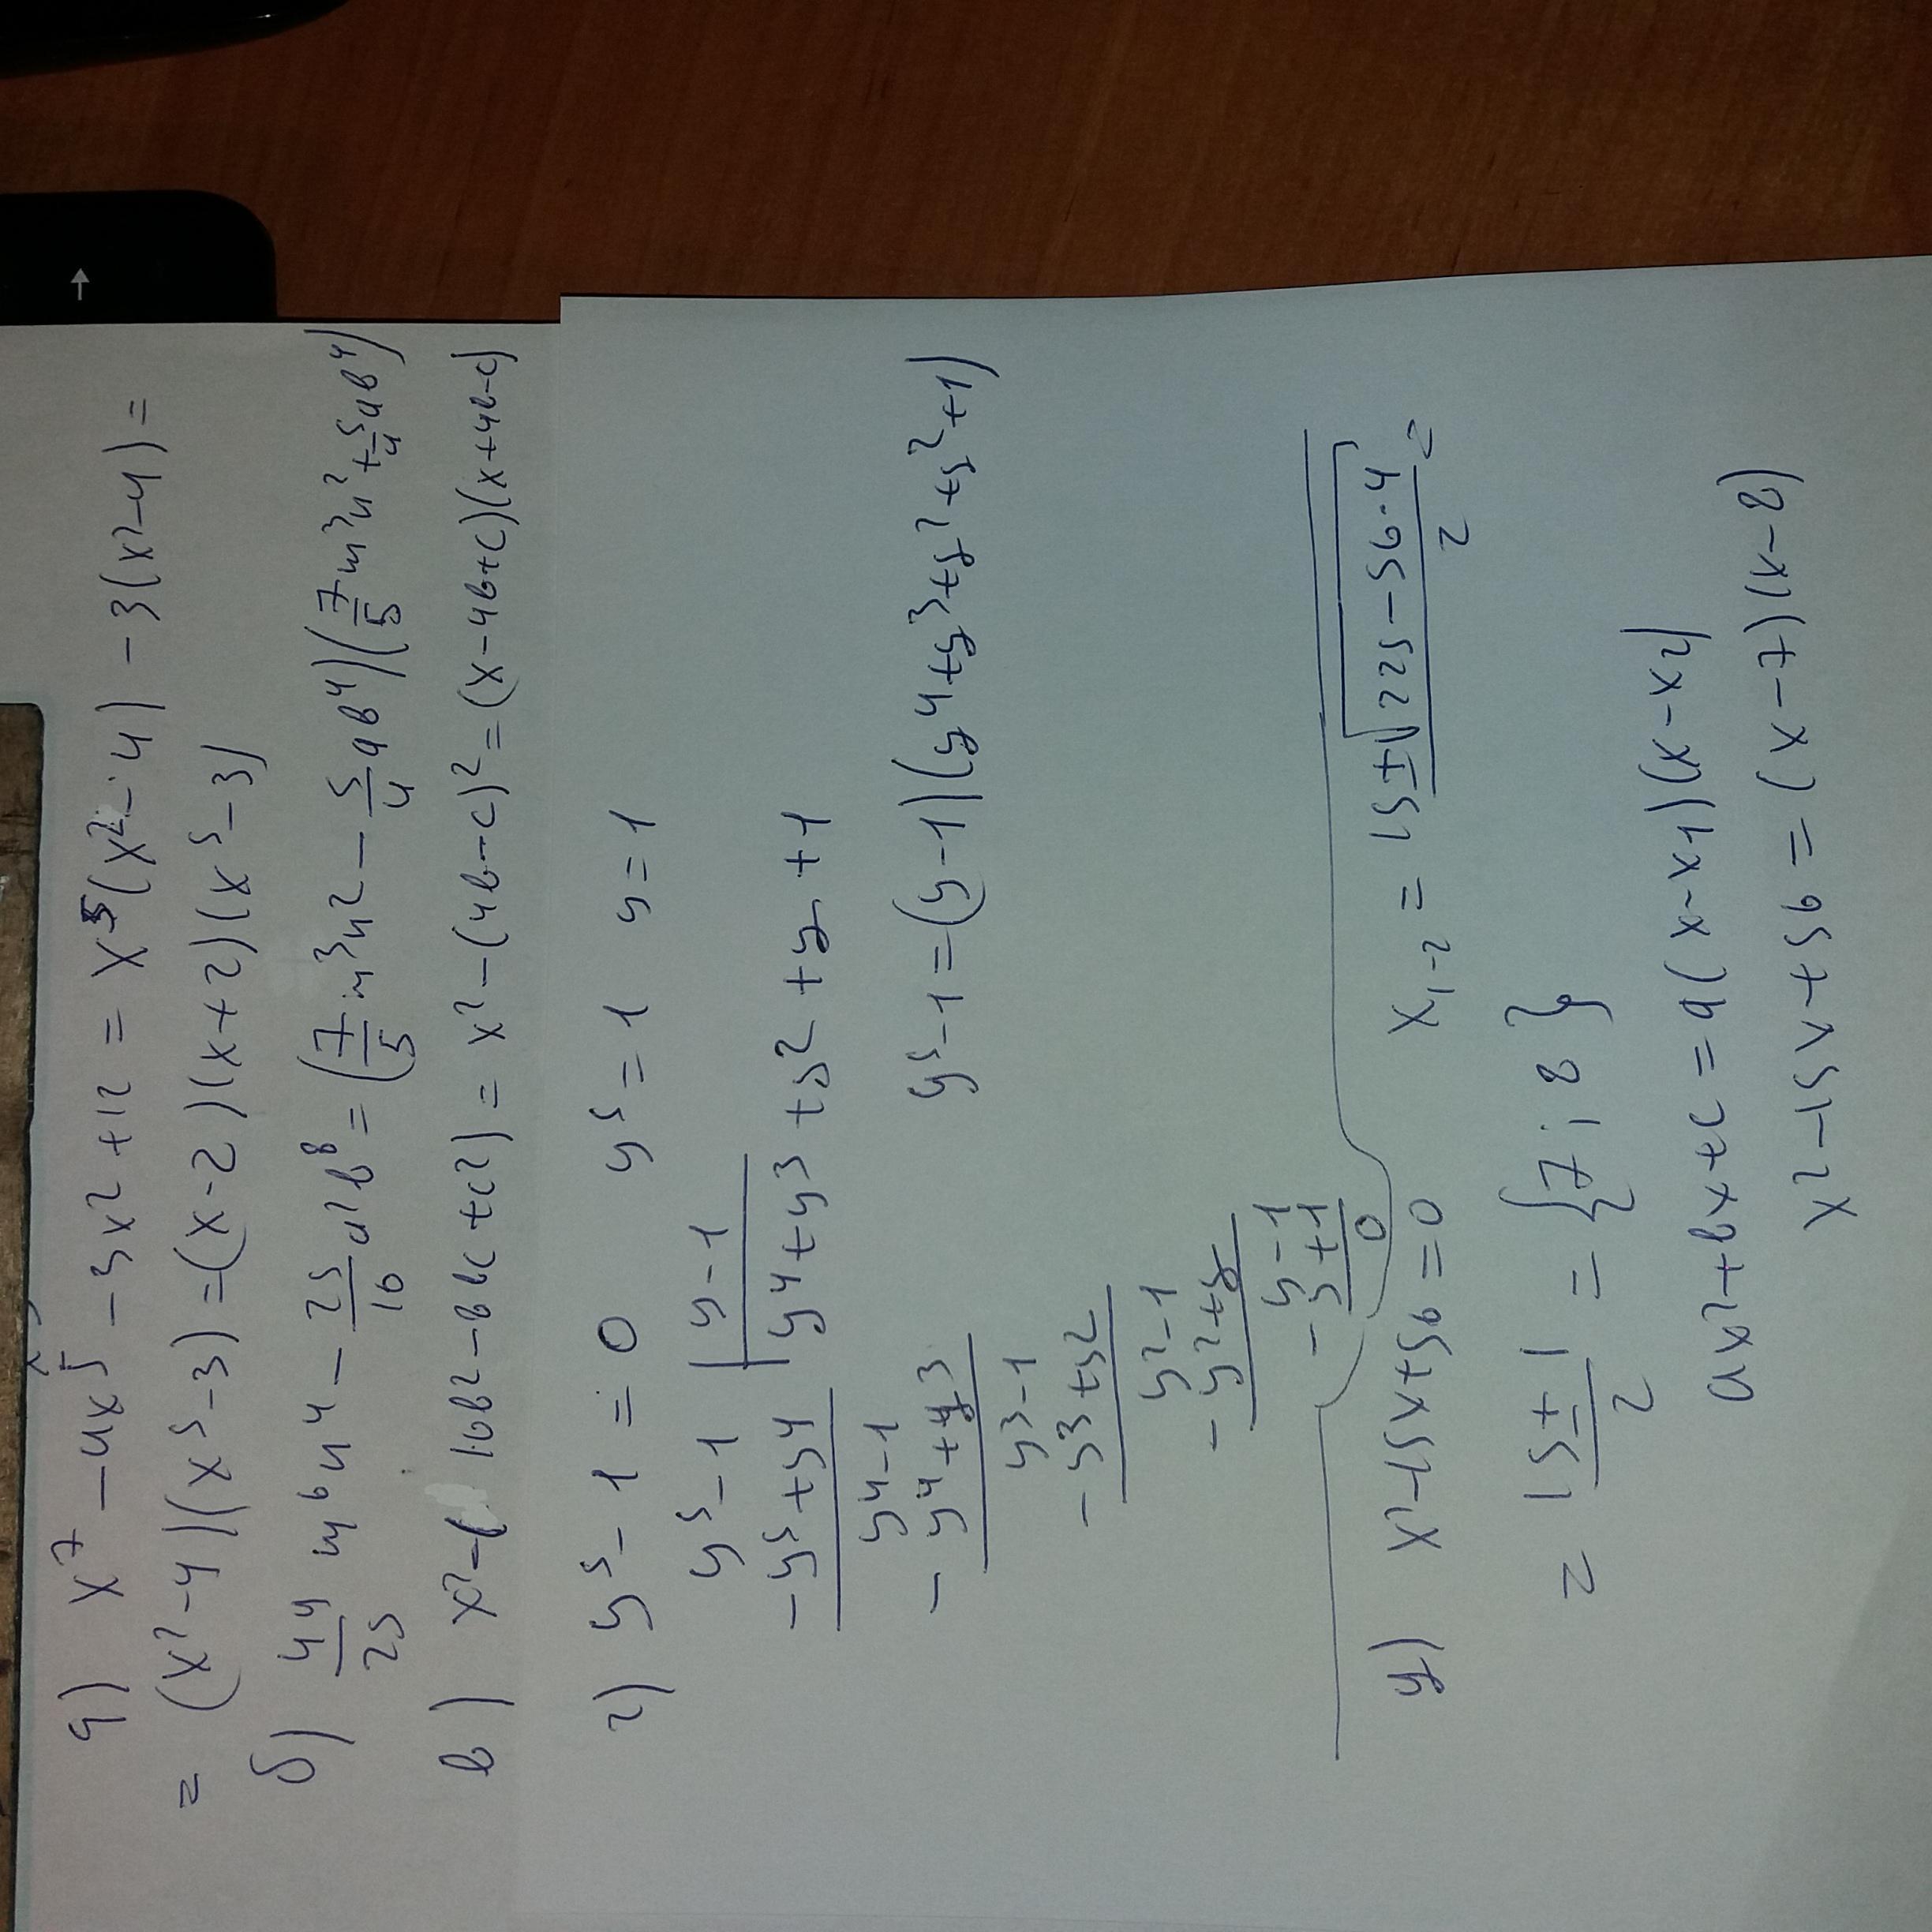 a) x⁷ - 4x⁵ - 3x² + 12 = x⁵(x² - 4) - 3(x² - 4) =
= (x² - 4)(x⁵ - 3) = (x - 2)(x + 2)(x⁵ - 3)
б) 49/25 m⁶n⁴ - 25/16 a²b⁸ = (7/5 m³n² - 5/4 ab⁴)(7/5 m³n² + 5/4 ab⁴)
в) x² - (16b² - 8bc + c²) = x² - (4b - c)² = (x - 4b + c)(x + 4b - c)
г) y⁵ - 1 = 0 y⁵ = 1 y = 1
y⁵ - 1 | y - 1
- y⁵ + y⁴ | y⁴ + y³ + y² + y + 1
y⁴ - 1
- y⁴ + y³ y⁵ - 1 = (y - 1)(y⁴ + y³ + y² + y² + 1)
y³ - 1
- y³ + y²
y² - 1
- y² + y
y - 1
- y + 1
0
д) x² - 15x + 56 = 0 x₁₋₂ = 15 ± √225 - 56·4 / 2 =
= 15 ± 1 / 2 = {7; 8}
ax² + bx + c = a(x - x₁)(x - x₂)
x² - 15x + 56 = (x - 7)(x - 8)